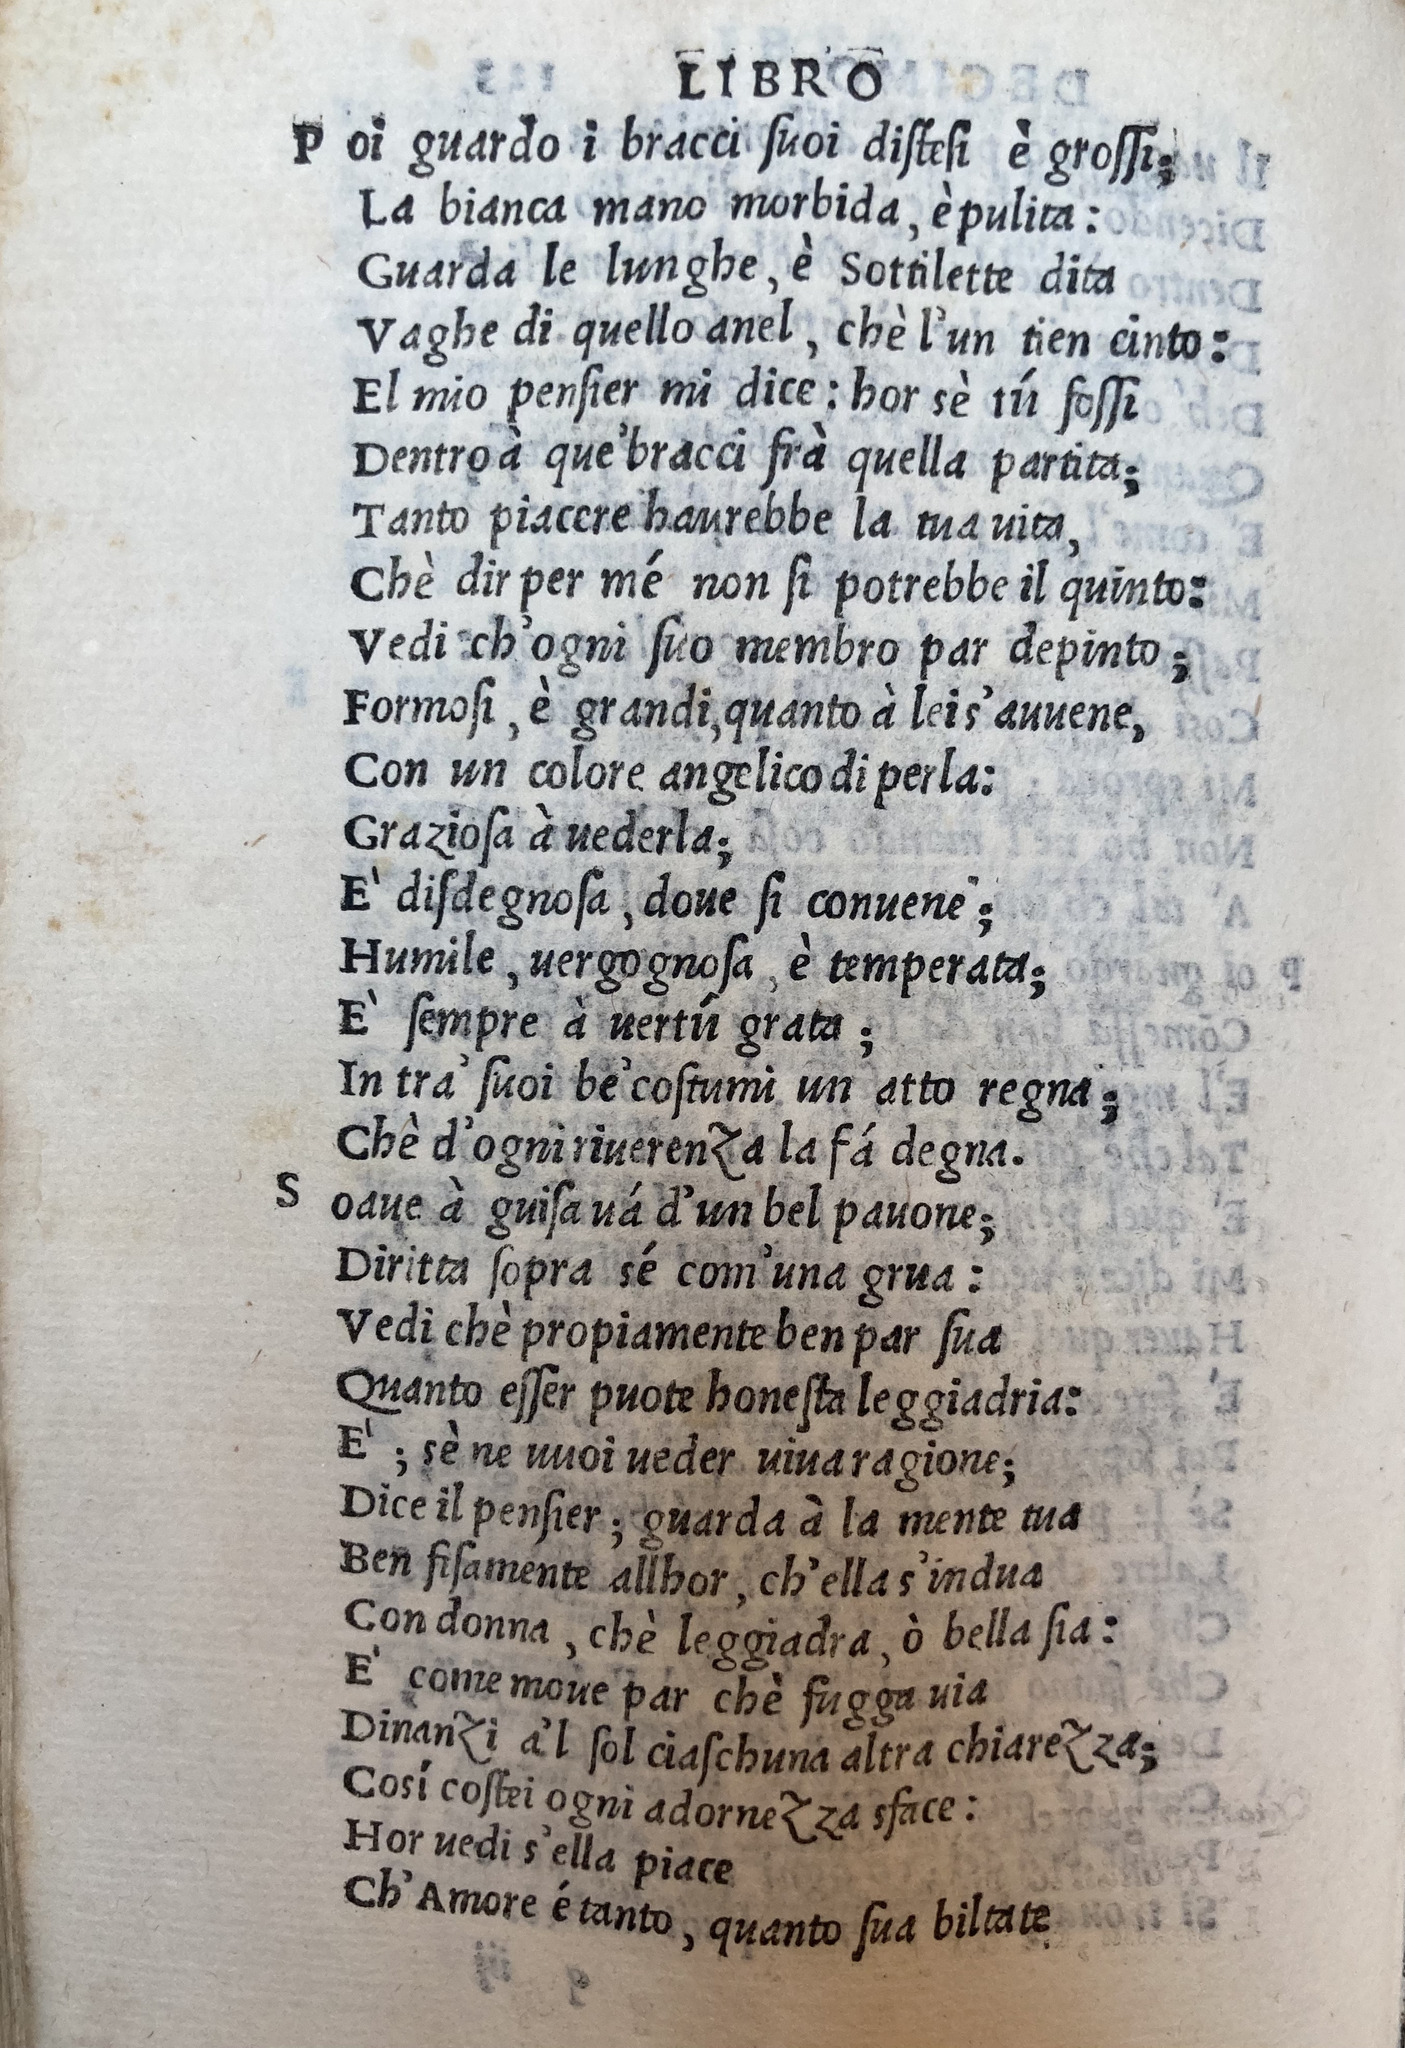 LIBRO
Poi guardo i bracci ſuoi diſteſi è groſſi;
La bianca mano morbida, è pulita:
Guarda le lunghe, è Sottilette dita
Vaghe di quello anel, chè l'un tien cinto:
El mio penſier mi dice: hor sè tú foſſi
Dentro à que'bracci frà quella partita;
Tanto piacere haurebbe la tua uita,
Chè dir per mé non ſi potrebbe il quinto:
Vedi ch'ogni ſuo membro par depinto;
Formoſi, è grandi, quanto à lei s'auuene,
Con un colore angelico di perla:
Grazioſa à uederla;
E' diſdegnoſa, doue ſi conuene;
Humile, uergognoſa, è temperata;
E' ſempre à uertú grata;
In tra' ſuoi be'coſtumi un atto regna;
Chè d'ogni riuerenza la fá degna.
Soaue à guiſa uá d'un bel pauone;
Diritta ſopra sé com'una grua:
Vedi chè propiamente ben par ſua
Quanto eſſer puote honeſta leggiadria:
E'; sè ne uuoi ueder uiua ragione;
Dice il penſier; guarda à la mente tua
Ben fiſamente allhor, ch'ella s'indua
Con donna, chè leggiadra, ò bella ſia:
E' come moue par chè fugga uia
Dinanzi a'l ſol ciaſchuna altra chiarezza;
Cosí coſtei ogni adornezza sface:
Hor uedi s'ella piace
Ch'Amore é tanto, quanto ſua biltate